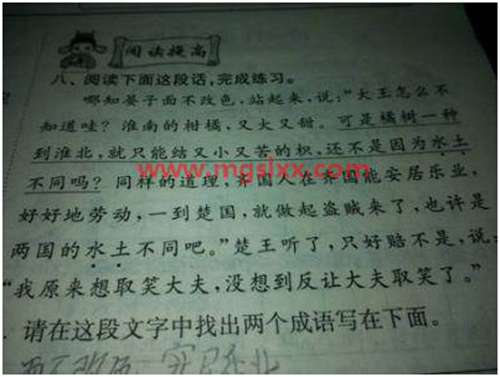 阅读提高
八、阅读下面这段话,完成练习。
哪知晏子面不改色,站起来,说:“大王怎么不
知道哇?淮南的柑橘,又大又甜。可是橘树一种
到淮北,就只能结又小又苦的枳,还不是因为水土
www.mgslxx.com
不同吗?同样的道理,齐国人在齐国能安居乐业,
好好地劳动,一到楚国,就做起盗贼来了,也许是
两国的水土不同吧。”楚王听了,只好赔不是,说
“我原来想取笑大夫,没想到反让大夫取笑了。”
请在这段文字中找出两个成语写在下面。